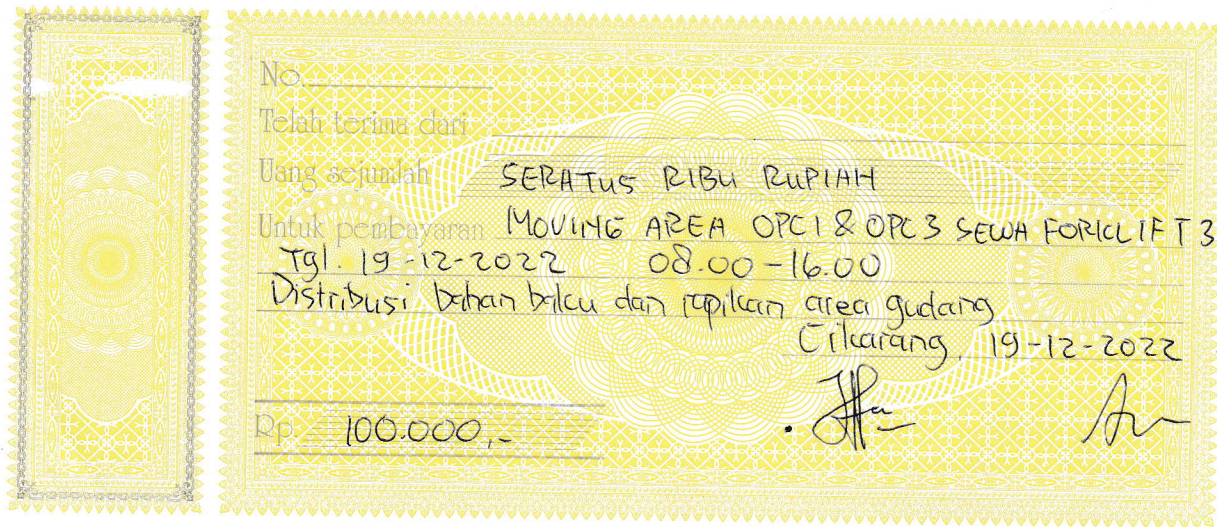 No.
Telah terima dari
Uang sejumlah SERATUS RIBU RUPIAH
Untuk pembayaran MOVING AREA OPC1 & OPC3 SEWA FORKLIFT 3
Tgl. 19-12-2022 08.00-16.00
Distribusi bahan baku dan rapikan area gudang
Cikarang, 19-12-2022
Rp. 100.000,-